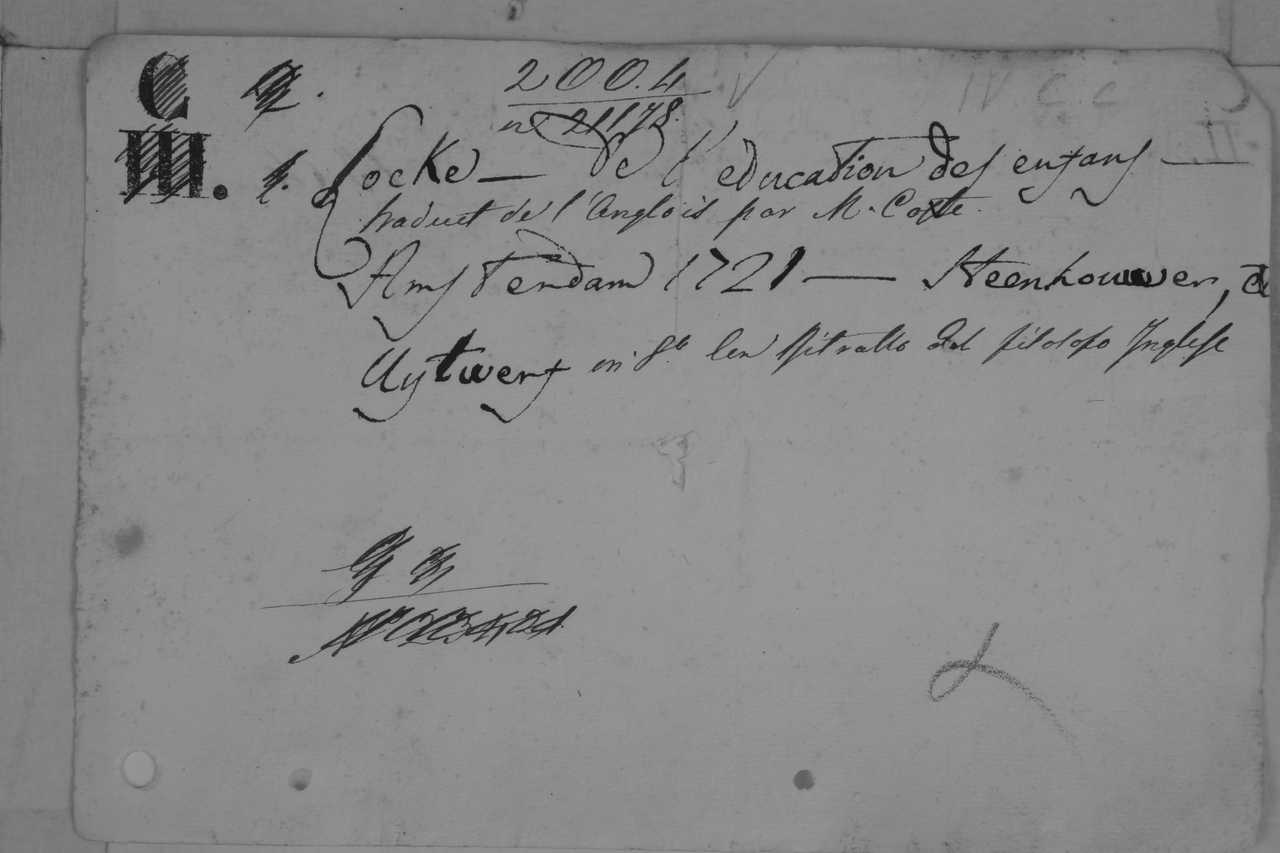 C
III. 1.
200.4
n° 21178
Locke — De l'education des enfans —
traduct de l'Anglois par M. Coste.
Amsterdam 1721 — Steenhouwer, &
Uytwerf in 8° con Ritratto del filosofo Inglese